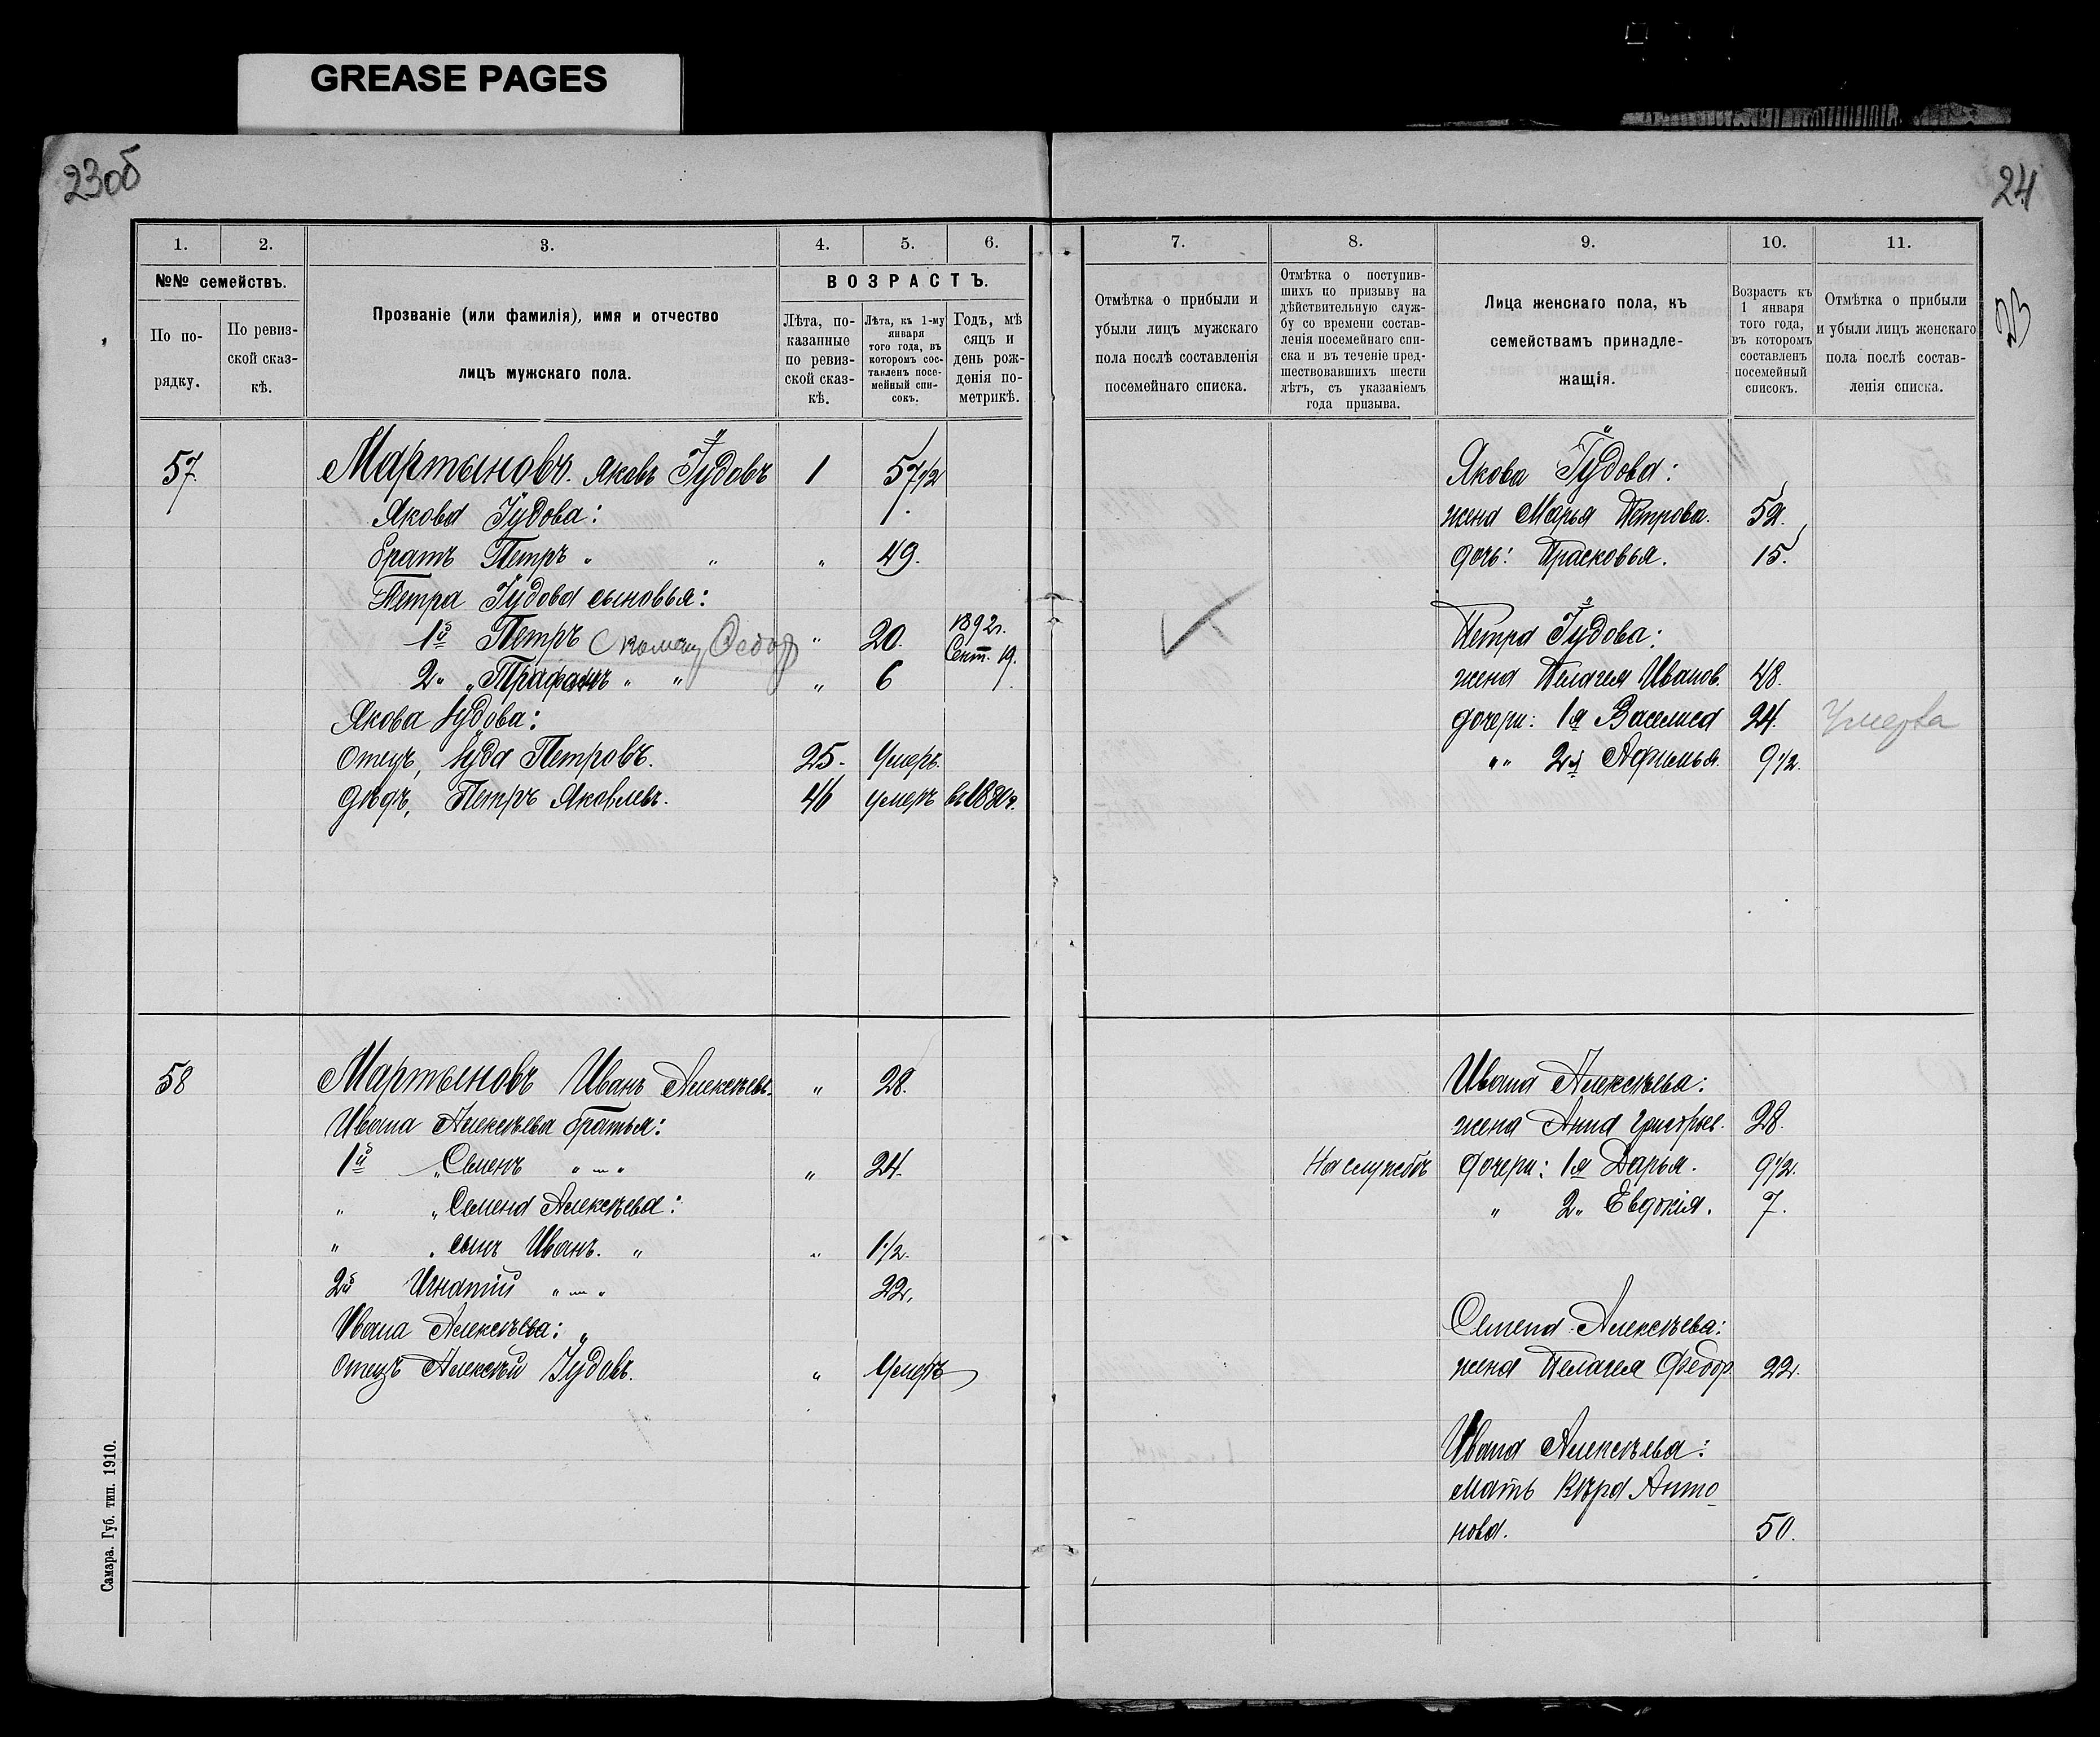 GREASE PAGES
23об
24
1.
2.
3.
4.
5.
6.
№№ семействъ.
По по-
рядку.
По ревиз-
ской сказ-
кѣ.
Прозваніе (или фамилія), имя и отчество
лицъ мужскаго пола.
ВОЗРАСТЪ.
Лѣта, по-
казанные
по ревиз-
ской сказ-
кѣ.
Лѣта, къ 1-му
января
того года, въ
которомъ сос-
тавленъ посе-
мейный спи-
сокъ.
Годъ, мѣ
сяцъ и
день рож-
денія по-
метрикѣ.
57. Мартыновъ. Яковъ Іудовъ 1 57 1/2
Якова Іудова:
братъ Петръ " " " 49.
Петра Іудова сыновья:
1й Петръ " 20. 1892г. Сент. 19.
2" " " " " 6
Якова Іудова:
отецъ, Іуда Петровъ. 25. Умеръ.
дѣдъ, Петръ Яковлевъ. 46 умеръ въ 1880г.
58 Мартыновъ Иванъ Алексѣевъ. " 28.
Ивана Алексѣева братья:
1й " Семенъ " — " " 24.
" " Семена Алексѣева:
" " сынъ Иванъ. " " 1 1/2.
2й Игнатій " — " 22.
Ивана Алексѣева: "
отецъ Алексѣй Іудовъ. " Умеръ
Самара. Губ. тип. 1910.
7.
8.
9.
10.
11.
Отмѣтка о прибыли и
убыли лицъ мужскаго
пола послѣ составленія
посемейнаго списка.
Отмѣтка о поступив-
шихъ по призыву на
дѣйствительную служ-
бу со времени состав-
ленія посемейнаго спи-
ска и въ теченіе пред-
шествовавшихъ шести
лѣтъ, съ указаніемъ
года призыва.
Лица женскаго пола, къ
семействамъ принадле-
жащія.
Возрастъ къ
1 января
того года,
въ которомъ
составленъ
посемейный
списокъ.
Отмѣтка о прибыли
и убыли лицъ женскаго
пола послѣ состав-
ленія списка.
Якова Іудова:
жена Марья Петрова. 52.
дочь: Прасковья. 15.
Петра Іудова:
жена Пелагея Иванов. 48.
дочери: 1я Василиса 24. Умерла
" " 2я Афимья. 9 1/2.
Ивана Алексѣева:
жена Анна Григорьев. 28.
На службѣ дочери: 1я Дарья. 9 1/2.
" 2" Евдокія. 7.
Семена Алексѣева:
жена Пелагея Федор. 22.
Ивана Алексѣева:
мать Вѣра Анто-
нова. 50.